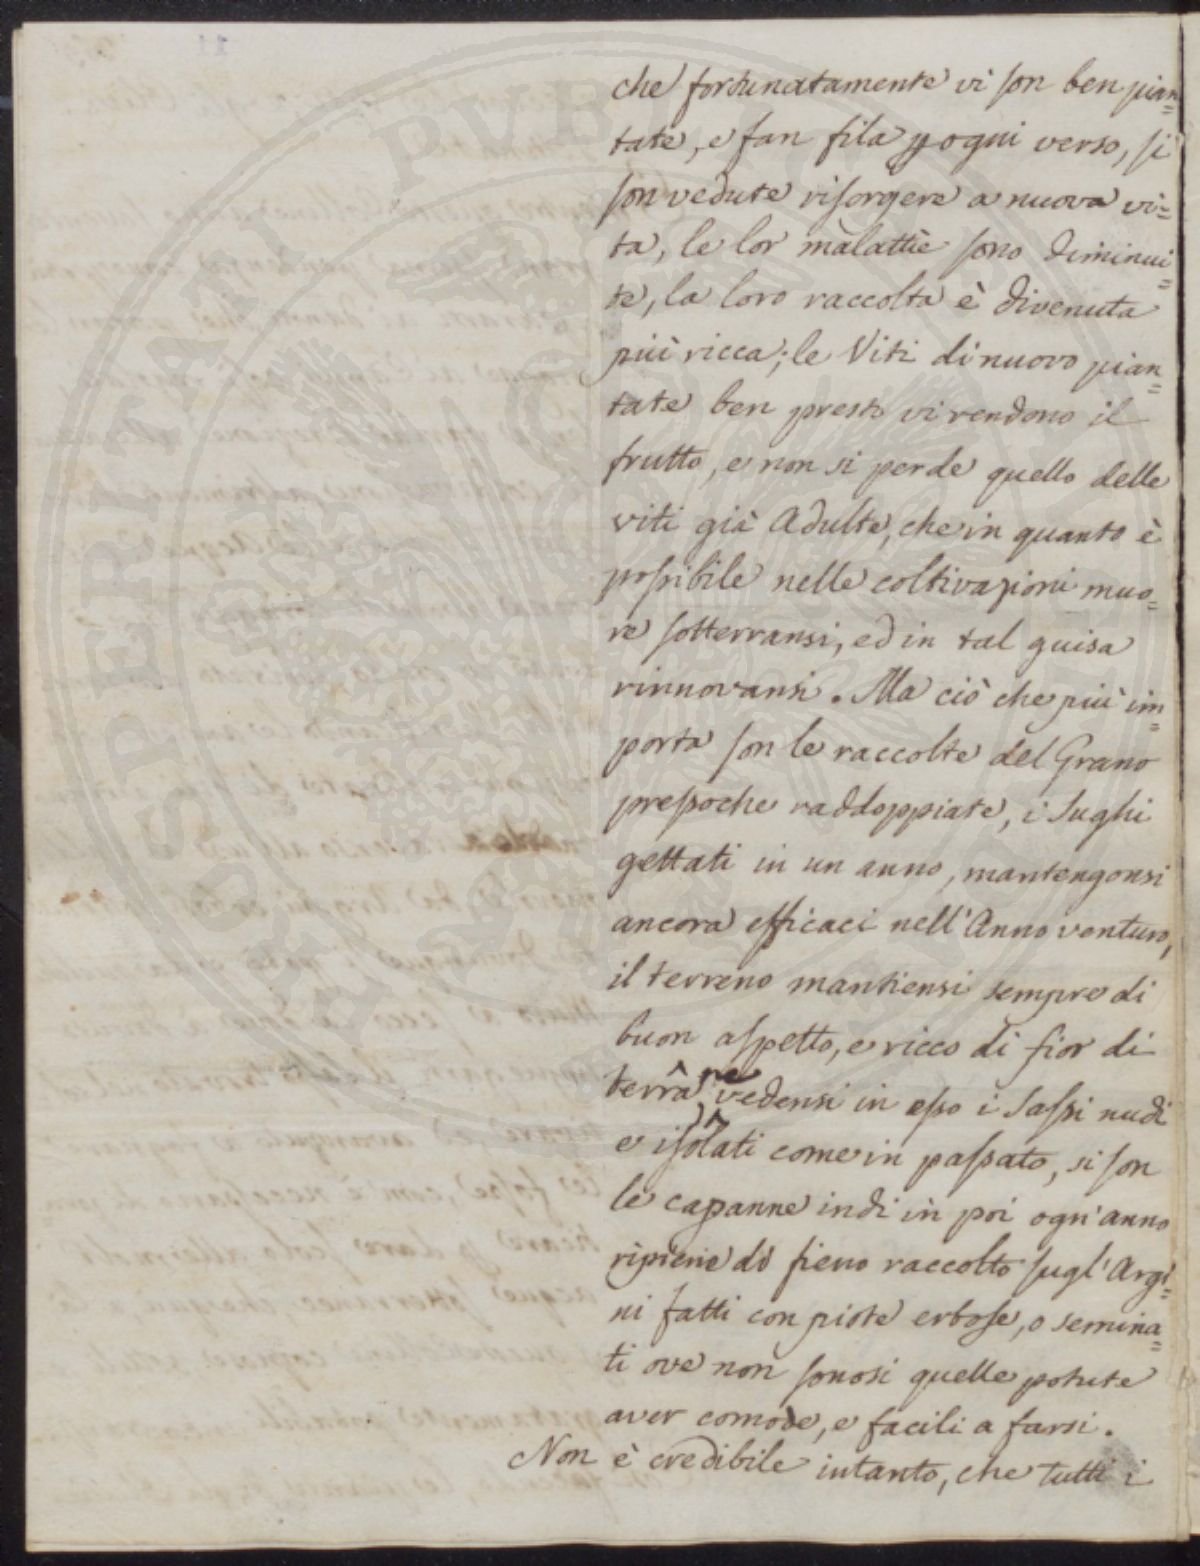 che fortunatamente vi son ben pian=
tate, e fan fila p ogni verso, si
son vedute risorgere a nuova vi=
ta, le lor malattie sono diminui=
te, la loro raccolta è divenuta
più ricca; le Viti di nuovo pian=
tate ben presto vi rendono il
frutto, e non si perde quello delle
viti già Adulte, che in quanto è
possibile nelle coltivazioni muo=
re sotterransi, ed in tal guisa
rinnovansi. Ma ciò che più im=
porta son le raccolte del Grano
pressoche raddoppiate, i Sughi
gettati in un anno, mantengonsi
ancora efficaci nell'Anno venturo,
il terreno mantiensi sempre di
buon aspetto, e ricco di fior di
terra, ne vedensi in esso i Sassi nudi
e isolati come in passato, si son
le capanne indi in poi ogn'anno
ripiene di fieno raccolto sugl'Argi=
ni fatti con piote erbose, o semina=
ti ove non sonosi quelle potute
aver comode, e facili a farsi.
Non è credibile intanto, che tutti i
PROSPERITATI PVBLICAE